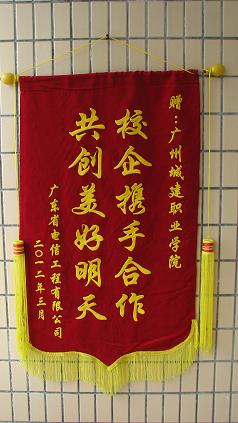 赠：广州城建职业学院
校企携手合作
共创美好明天
广东省电信工程有限公司
二〇一二年三月